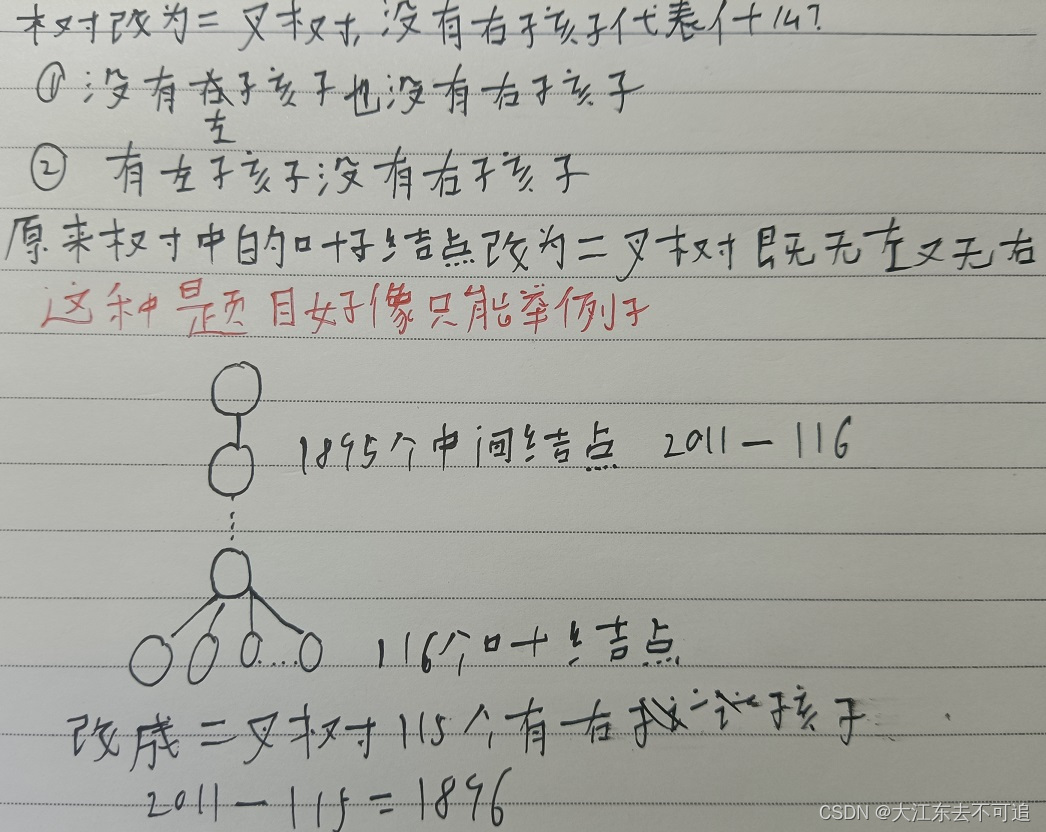 树改为二叉树,没有右子孩子代表什么?
① 没有左子孩子也没有右子孩子
左
② 有左子孩子没有右子孩子
原来树中的叶子结点改为二叉树 既无左又无右
这种题目好像只能举例子
1895个中间结点 2011-116
116个叶结点
改成二叉树 115个有右 孩子
2011-115=1896
CSDN @大江东去不可追